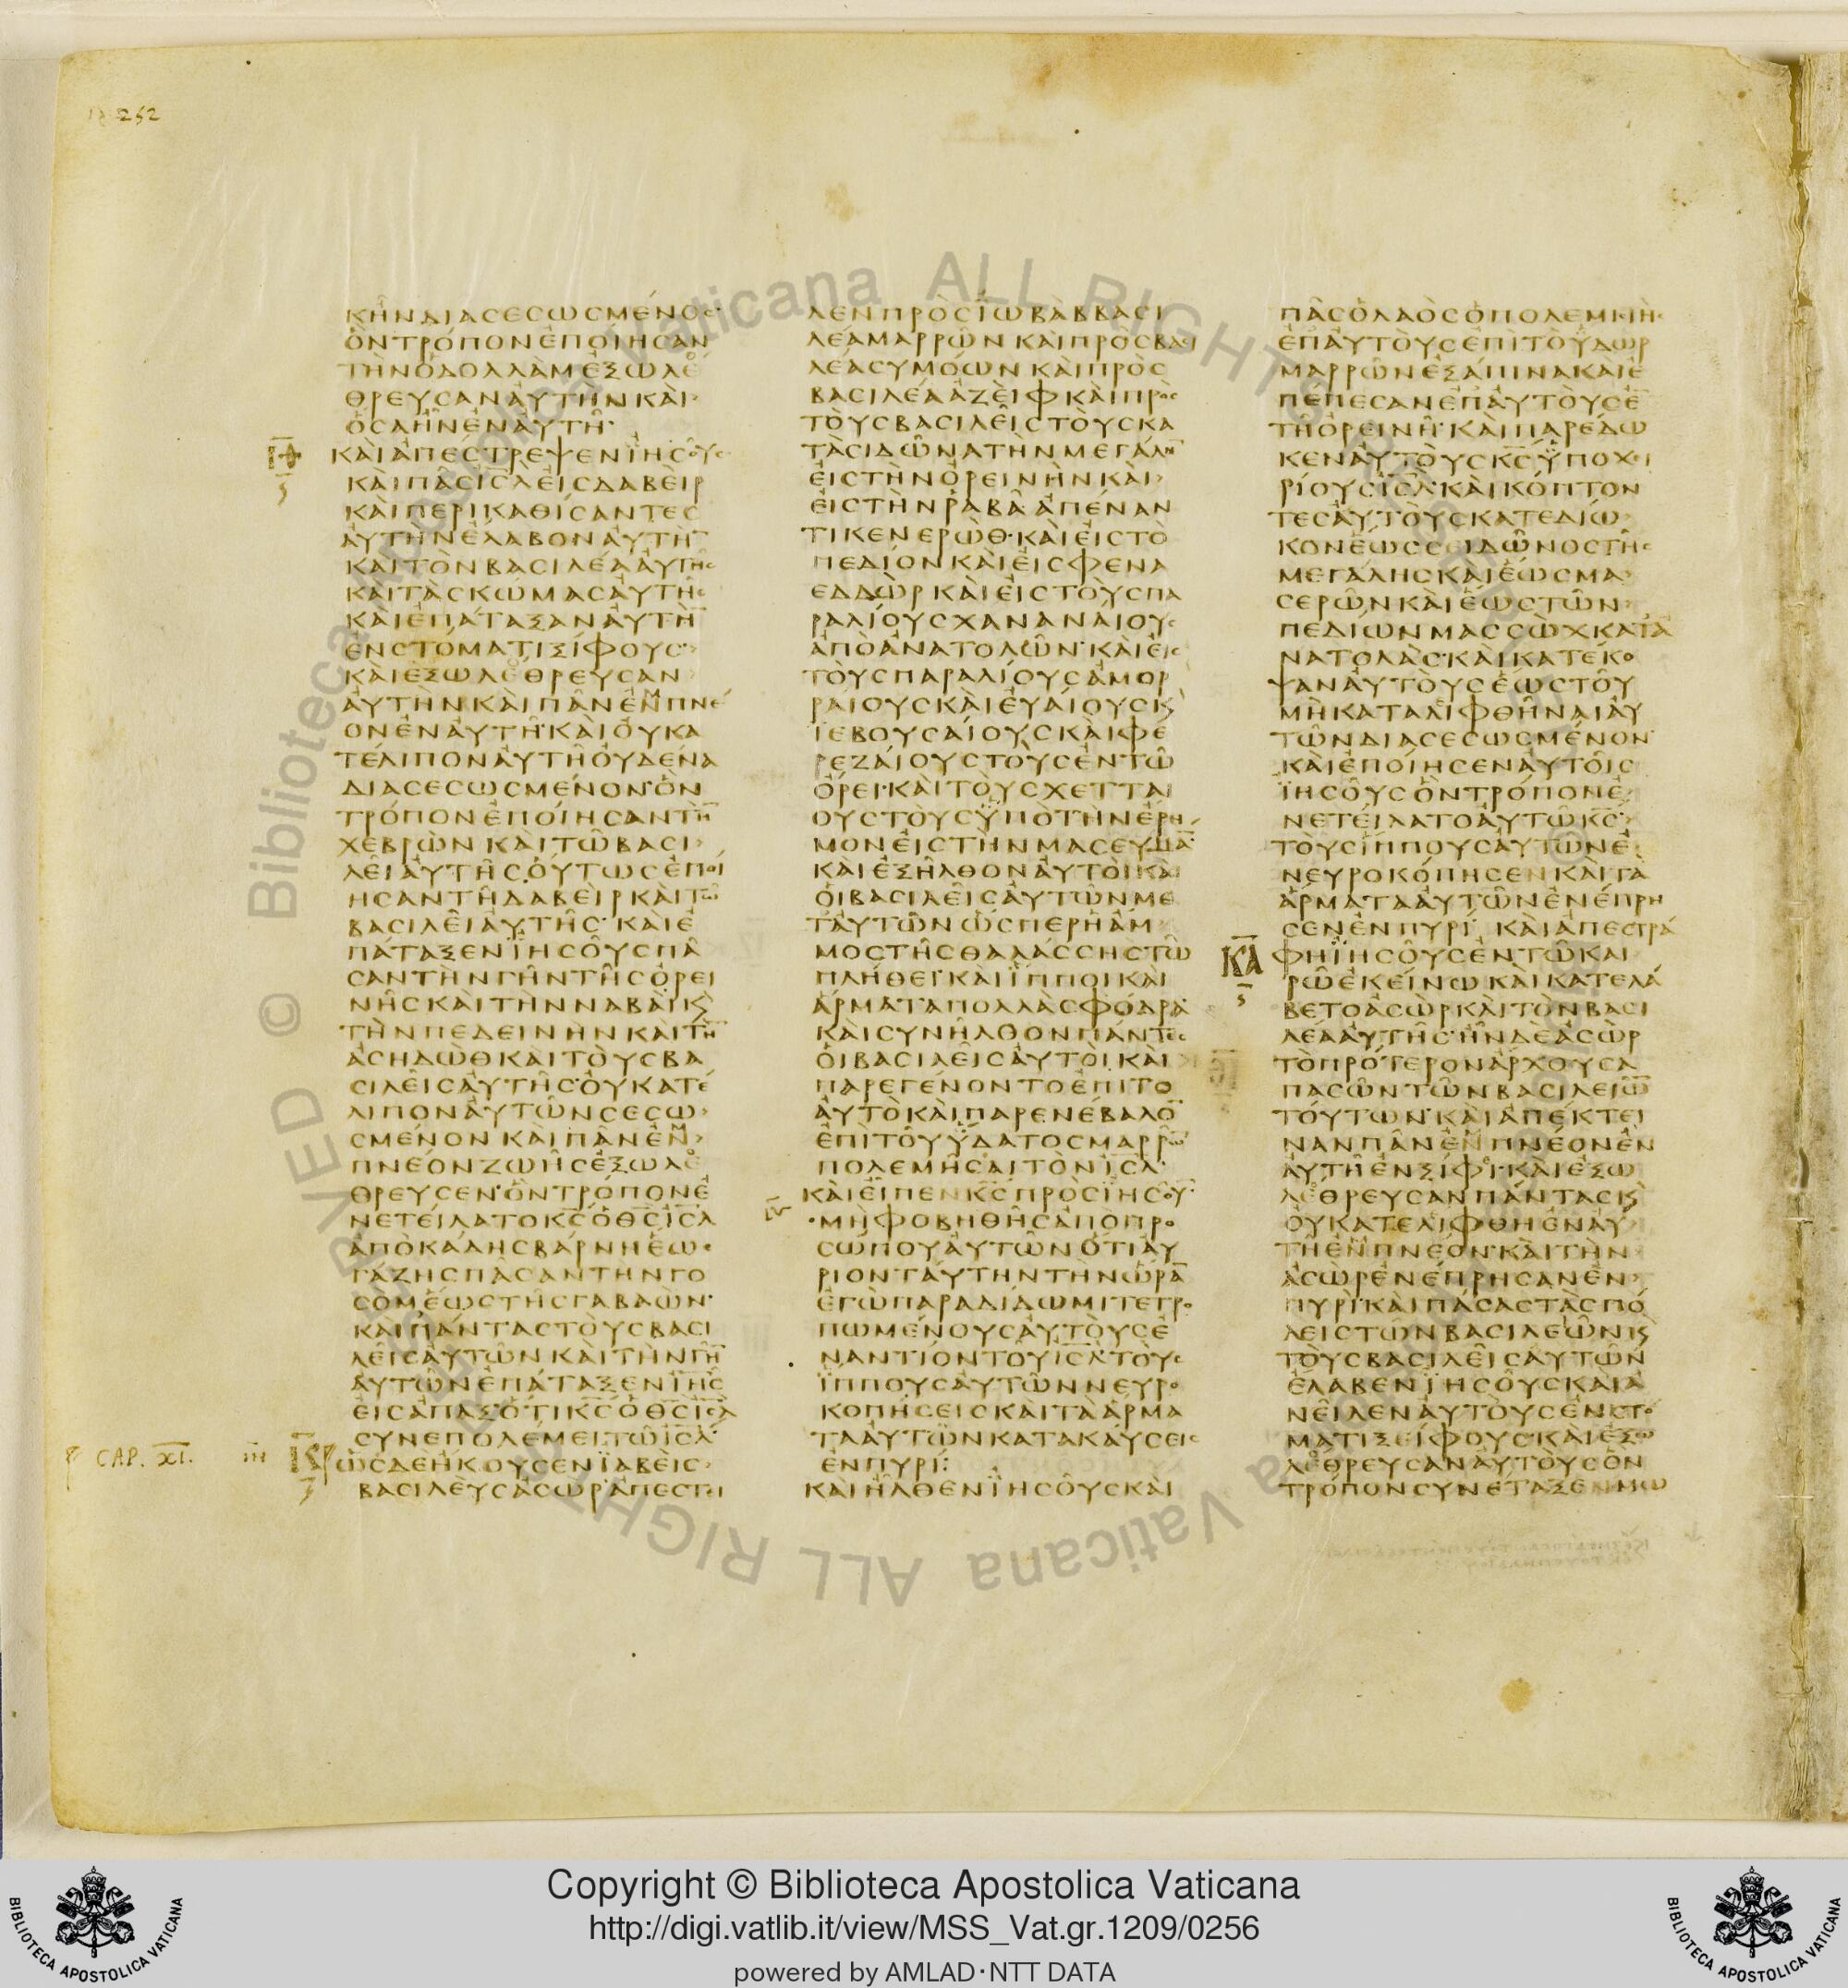 252
ΚΗΝΔΙΑCΕCΩCΜΕΝΟC
ΟΝΤΡΟΠΟΝΕΠΟΙΗCΑΝ
ΤΗΝΟΔΟΛΛΑΜΕΞΩΛΕ
ΘΡΕΥCΑΝΑΥΤΗΝΚΑΙ
ΟCΑΗΝΕΝΑΥΤΗ
ΚΑΙΑΠΕCΤΡΕΨΕΝΙΗCΟΥC
ΚΑΙΠΑCΙCΛΕΙCΔΑΒΕΙΡ
ΚΑΙΠΕΡΙΚΑΘΙCΑΝΤΕC
ΑΥΤΗΝΕΛΑΒΟΝΑΥΤΗ̅
ΚΑΙΤΟΝΒΑCΙΛΕΑΑΥΤΗC
ΚΑΙΤΑCΚΩΜΑCΑΥΤΗC
ΚΑΙΕΠΑΤΑΞΑΝΑΥΤΗ̅
ΕΝCΤΟΜΑΤΙΞΙΦΟΥC
ΚΑΙΕΞΩΛΕΘΡΕΥCΑΝ
ΑΥΤΗΝΚΑΙΠΑΝΕΜΠΝΕ
ΟΝΕΝΑΥΤΗΚΑΙΟΥΚΑ
ΤΕΛΙΠΟΝΑΥΤΗΟΥΔΕΝΑ
ΔΙΑCΕCΩCΜΕΝΟΝΟΝ
ΤΡΟΠΟΝΕΠΟΙΗCΑΝΤΗ̅
ΧΕΒΡΩΝΚΑΙΤΩΒΑCΙ
ΛΕΙΑΥΤΗCΟΥΤΩCΕΠΟΙ
ΗCΑΝΤΗΔΑΒΕΙΡΚΑΙΤΩ
ΒΑCΙΛΕΙΑΥΤΗCΚΑΙΕ
ΠΑΤΑΞΕΝΙΗCΟΥCΠΑ
CΑΝΤΗΝΓΗΝΤΗCΟΡΕΙ
ΝΗCΚΑΙΤΗΝΝΑΒΑΙΚ
ΤΗΝΠΕΔΕΙΝΗΝΚΑΙΤΗ̅
ΑCΗΔΩΘΚΑΙΤΟΥCΒΑ
CΙΛΕΙCΑΥΤΗCΟΥΚΑΤΕ
ΛΙΠΟΝΑΥΤΩΝCΕCΩ
CΜΕΝΟΝΚΑΙΠΑΝΕΜ
ΠΝΕΟΝΖΩΗCΕΞΩΛΕ
ΘΡΕΥCΕΝΟΝΤΡΟΠΟΝΕ
ΝΕΤΕΙΛΑΤΟΚ̅C̅ΟΘ̅C̅Ι̅C̅Λ̅
ΑΠΟΚΑΔΗCΒΑΡΝΗΕΩC
ΓΑΖΗCΠΑCΑΝΤΗΝΓΟ
CΟΜΕΩCΤΗCΓΑΒΑΩΝ
ΚΑΙΠΑΝΤΑCΤΟΥCΒΑCΙ
ΛΕΙCΑΥΤΩΝΚΑΙΤΗΝΓΗ̅
ΑΥΤΩΝΕΠΑΤΑΞΕΝΙΗC
ΕΙCΑΠΑΞΟΤΙΚ̅C̅ΟΘ̅C̅Ι̅C̅Λ̅
CΥΝΕΠΟΛΕΜΕΙΤΩΙ̅C̅Λ̅
CAP. XI.
ΩCΔΕΗΚΟΥCΕΝΙΑΒΕΙC
ΒΑCΙΛΕΥCΑCΩΡΑΠΕCΤΕΙ
ΛΕΝΠΡΟCΙΩΒΑΒΒΑCΙ
ΛΕΑΜΑΡΡΩΝΚΑΙΠΡΟCΒΑCΙ
ΛΕΑCΥΜΟΩΝΚΑΙΠΡΟC
ΒΑCΙΛΕΑΑΖΕΙΦΚΑΙΠΡΟC
ΤΟΥCΒΑCΙΛΕΙCΤΟΥCΚΑ
ΤΑCΙΔΩΝΑΤΗΝΜΕΓΑΛΗ̅
ΕΙCΤΗΝΟΡΕΙΝΗΝΚΑΙ
ΕΙCΤΗΝΡΑΒΑΑΠΕΝΑΝ
ΤΙΚΕΝΕΡΩΘΚΑΙΕΙCΤΟ
ΠΕΔΙΟΝΚΑΙΕΙCΦΕΝΑ
ΕΔΔΩΡΚΑΙΕΙCΤΟΥCΠΑ
ΡΑΛΙΟΥCΧΑΝΑΝΑΙΟΥC
ΑΠΟΑΝΑΤΟΛΩΝΚΑΙΕΙC
ΤΟΥCΠΑΡΑΛΙΟΥCΑΜΟΡ
ΡΑΙΟΥCΚΑΙΕΥΑΙΟΥCΚ
ΙΕΒΟΥCΑΙΟΥCΚΑΙΦΕ
ΡΕΖΑΙΟΥCΤΟΥCΕΝΤΩ
ΟΡΕΙΚΑΙΤΟΥCΧΕΤΤΑΙ
ΟΥCΤΟΥCΥΠΟΤΗΝΕΡΗ
ΜΟΝΕΙCΤΗΝΜΑCΕΥΜΑ̅
ΚΑΙΕΞΗΛΘΟΝΑΥΤΟΙΚΑΙ
ΟΙΒΑCΙΛΕΙCΑΥΤΩΝΜΕ
ΤΑΥΤΩΝΩCΠΕΡΗΑΜ
ΜΟCΤΗCΘΑΛΑCCΗCΤΩ
ΠΛΗΘΕΙΚΑΙΙΠΠΟΙΚΑΙ
ΑΡΜΑΤΑΠΟΛΛΑCΦΟΔΡΑ
ΚΑΙCΥΝΗΛΘΟΝΠΑΝΤΕC
ΟΙΒΑCΙΛΕΙCΑΥΤΟΙΚΑΙ
ΠΑΡΕΓΕΝΟΝΤΟΕΠΙΤΟ
ΑΥΤΟΚΑΙΠΑΡΕΝΕΒΑΛΟ̅
ΕΠΙΤΟΥΥΔΑΤΟCΜΑΡΡΩ̅
ΠΟΛΕΜΗCΑΙΤΟΝΙ̅C̅Λ̅
ΚΑΙΕΙΠΕΝΚ̅C̅ΠΡΟCΙΗCΟΥ̅
ΜΗΦΟΒΗΘΗCΑΠΟΠΡΟ
CΩΠΟΥΑΥΤΩΝΟΤΙΑΥ
ΡΙΟΝΤΑΥΤΗΝΤΗΝΩΡΑ̅
ΕΓΩΠΑΡΑΔΙΔΩΜΙΤΕΤΡΟ
ΠΩΜΕΝΟΥCΑΥΤΟΥCΕ
ΝΑΝΤΙΟΝΤΟΥΙ̅C̅Λ̅ΤΟΥC
ΙΠΠΟΥCΑΥΤΩΝΝΕΥΡΟ
ΚΟΠΗCΕΙCΚΑΙΤΑΑΡΜΑ
ΤΑΑΥΤΩΝΚΑΤΑΚΑΥCΕΙC
ΕΝΠΥΡΙ:
ΚΑΙΗΛΘΕΝΙΗCΟΥCΚΑΙ
ΠΑCΟΛΑΟCΟΠΟΛΕΜΙCΤΗC
ΕΠΑΥΤΟΥCΕΠΙΤΟΥΔΩΡ
ΜΑΡΡΩΝΕΞΑΠΙΝΑΚΑΙΕ
ΠΕΠΕCΑΝΕΠΑΥΤΟΥCΕ
ΤΗΟΡΕΙΝΗΚΑΙΠΑΡΕΔΩ
ΚΕΝΑΥΤΟΥCΚ̅C̅ΥΠΟΧΕΙ
ΡΙΟΥCΙ̅C̅Λ̅ΚΑΙΚΟΠΤΟΝ
ΤΕCΑΥΤΟΥCΚΑΤΕΔΙΩ
ΚΟΝΕΩCCΕΙΔΩΝΟCΤΗC
ΜΕΓΑΛΗCΚΑΙΕΩCΜΑ
CΕΡΩΝΚΑΙΕΩCΤΩΝ
ΠΕΔΙΩΝΜΑCCΩΧΚΑΤΑ
ΝΑΤΟΛΑCΚΑΙΚΑΤΕΚΟ
ΨΑΝΑΥΤΟΥCΕΩCΤΟΥ
ΜΗΚΑΤΑΛΙΦΘΗΝΑΙΑΥ
ΤΩΝΔΙΑCΕCΩCΜΕΝΟΝ
ΚΑΙΕΠΟΙΗCΕΝΑΥΤΟΙC
ΙΗCΟΥCΟΝΤΡΟΠΟΝΕ
ΝΕΤΕΙΛΑΤΟΑΥΤΩΚ̅C̅
ΤΟΥCΙΠΠΟΥCΑΥΤΩΝΕ
ΝΕΥΡΟΚΟΠΗCΕΝΚΑΙΤΑ
ΑΡΜΑΤΑΑΥΤΩΝΕΝΕΠΡΗ
CΕΝΕΝΠΥΡΙ ΚΑΙΑΠΕCΤΡΑ
Κ̅Α̅ ΦΗΙΗCΟΥCΕΝΤΩΚΑΙ
ΡΩΕΚΕΙΝΩΚΑΙΚΑΤΕΛΑ
ΒΕΤΟΑCΩΡΚΑΙΤΟΝΒΑCΙ
ΛΕΑΑΥΤΗCΗΝΔΕΑCΩΡ
ΤΟΠΡΟΤΕΡΟΝΑΡΧΟΥCΑ
ΠΑCΩΝΤΩΝΒΑCΙΛΕΙΩ̅
ΤΟΥΤΩΝΚΑΙΑΠΕΚΤΕΙ
ΝΑΝΠΑΝΕΝΠΝΕΟΝΕΝ
ΑΥΤΗΕΝΞΙΦΙΚΑΙΕΞΩ
ΛΕΘΡΕΥCΑΝΠΑΝΤΑCΚ
ΟΥΚΑΤΕΛΙΦΘΗΕΝΑΥ
ΤΗΕΝΠΝΕΟΝΚΑΙΤΗΝ
ΑCΩΡΕΝΕΠΡΗCΑΝΕΝ
ΠΥΡΙΚΑΙΠΑCΑCΤΑCΠΟ
ΛΕΙCΤΩΝΒΑCΙΛΕΩΝΚ
ΤΟΥCΒΑCΙΛΕΙCΑΥΤΩΝ
ΕΛΑΒΕΝΙΗCΟΥCΚΑΙΑ
ΝΕΙΛΕΝΑΥΤΟΥCΕΝCΤΟ
ΜΑΤΙΞΕΙΦΟΥCΚΑΙΕΞΩ
ΛΕΘΡΕΥCΑΝΑΥΤΟΥCΟΝ
ΤΡΟΠΟΝCΥΝΕΤΑΞΕΝΜΩ
Copyright © Biblioteca Apostolica Vaticana
http://digi.vatlib.it/view/MSS_Vat.gr.1209/0256
powered by AMLAD·NTT DATA
BIBLIOTECA APOSTOLICA VATICANA
BIBLIOTECA APOSTOLICA VATICANA